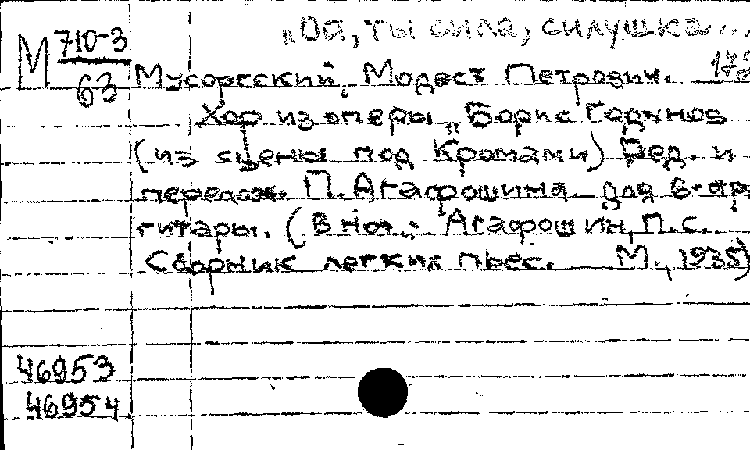 „Ой, ты сила, силушка...
М 710-3
63
Мусоргский, Модест Петрович.
Хор из оперы „Борис Годунов
(из сцены под Кромами) Ред. и
перелож. П. Агафошина для 6-стр
гитары. (В нот.: Агафошин, П.С.
Сборник легких пьес. М., 1935)
46953
46954